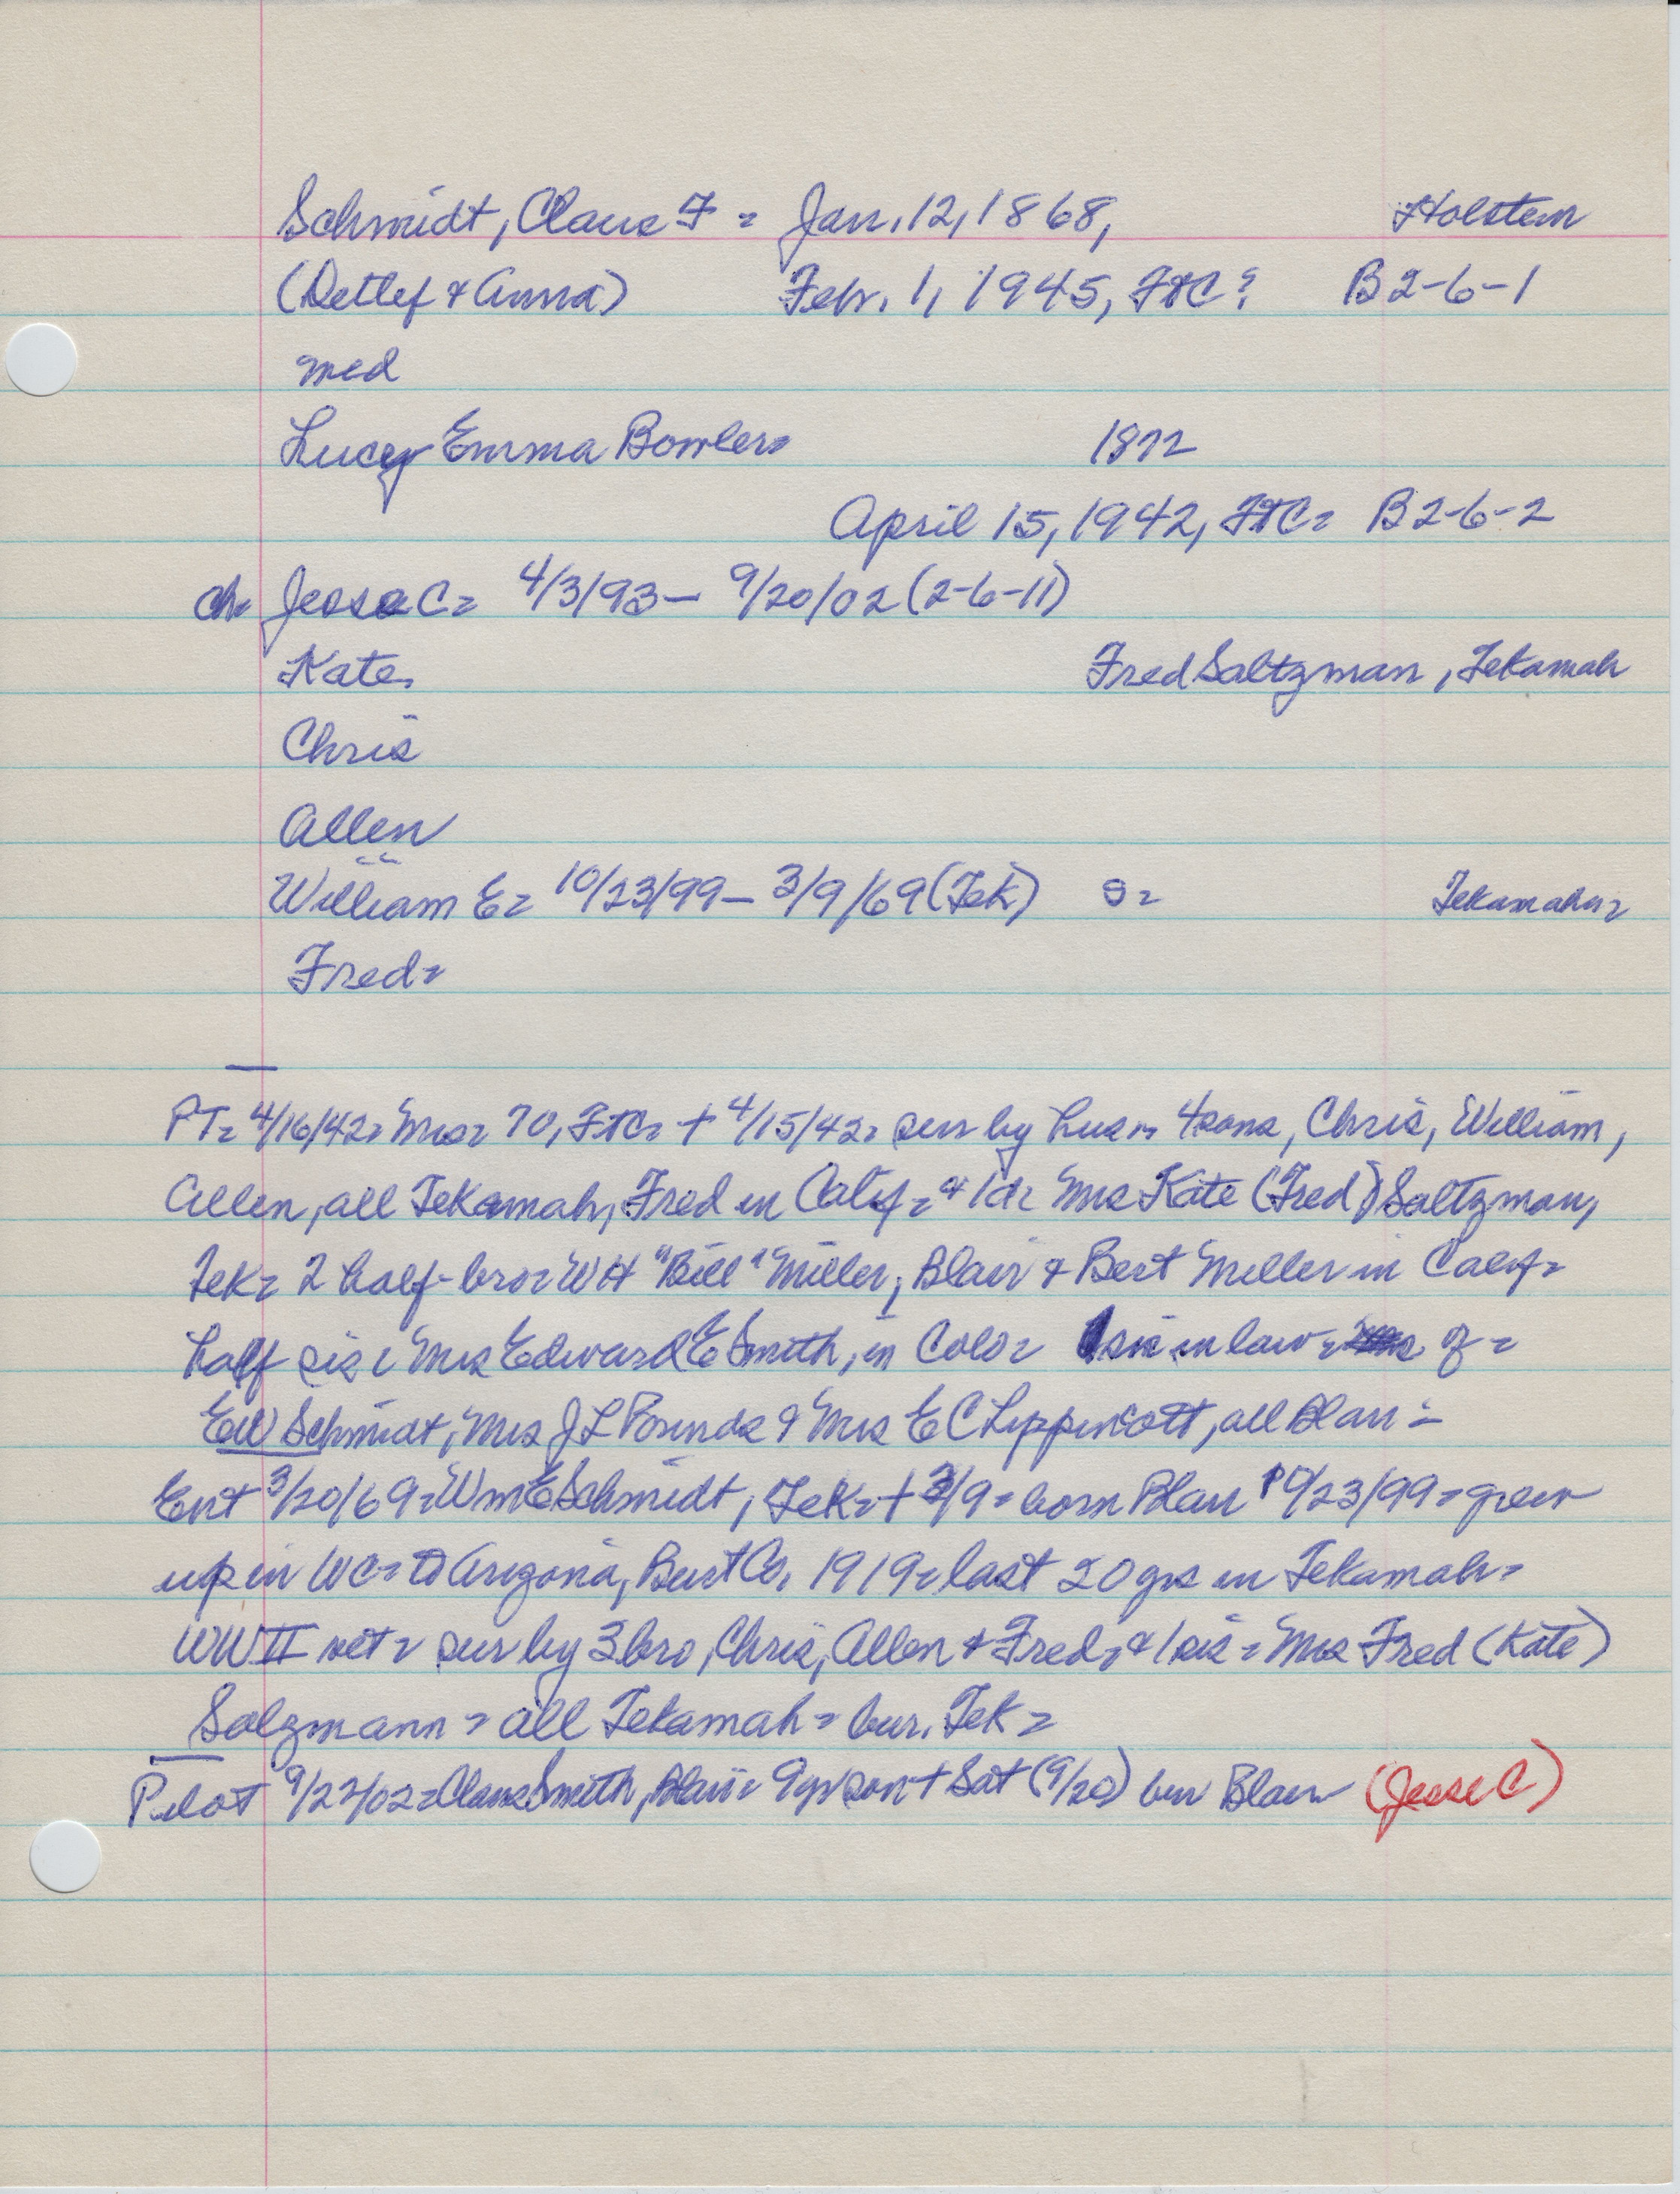 Schmidt, Claus F = Jan. 12, 1868, Holstein
(Detlef & Anna) Febr. 1, 1945, FTC? B2-6-1
med
Lucy Emma Bowler= 1872
April 15, 1942, FTC= B2-6-2
ch= Jesse C= 4/3/93 - 9/20/02 (2-6-11)
Kate Fred Saltzman, Tekamah
Chris
Allen
William E= 10/23/99 - 3/9/69 (Tek) S= Tekamah=
Fred=
PT= 4/16/42= Mrs= 70, FTC= + 4/15/42= sur by hus= 4 sons, Chris, William,
Allen, all Tekamah, Fred in Calif= & 1 d= Mrs Kate (Fred) Saltzman,
Tek= 2 half-bro= WH "Bill" Miller, Blair & Bert Miller in Calif=
half sis= Mrs Edward E Smith, in Colo= sis in law= of =
EW Schmidt, Mrs J L Pounds & Mrs E C Lippincott, all Blair=
Ent 3/20/69= Wm E Schmidt, Tek= + 3/9= born Blair 10/23/99= grew
up in WC= to Arizona, Burt Co. 1919= last 20 yrs in Tekamah=
WWII vet= sur by 3 bro, Chris, Allen & Fred, & 1 sis= Mrs Fred (Kate)
Salzmann= all Tekamah= bur. Tek=
Pilot 9/22/02= Claus Smith, Blair= 9 yr son + Sat (9/20) bur Blair (Jesse C)